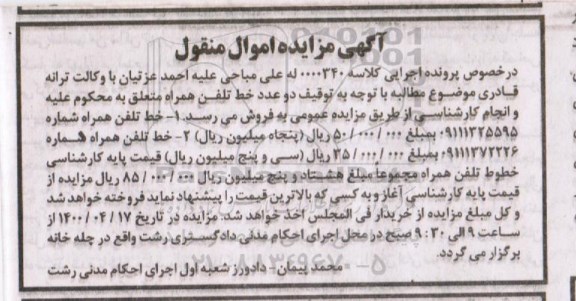 آگهی مزایده اموال منقول
درخصوص پرونده اجرایی کلاسه ۰۰۰۰۳۴۰ له علی مباحی علیه احمد عزتیان با وکالت ترانه
قادری موضوع مطالبه با توجه به توقیف دو عدد خط تلفن همراه متعلق به محکوم علیه
و انجام کارشناسی از طریق مزایده عمومی به فروش می رسد. ۱- خط تلفن همراه شماره
۰۹۱۱۱۳۲۵۵۹۵ بمبلغ ۵۰/۰۰۰/۰۰۰ ریال (پنجاه میلیون ریال) ۲- خط تلفن همراه شماره
۰۹۱۱۱۳۷۲۲۲۶ بمبلغ ۳۵/۰۰۰/۰۰۰ ریال (سی و پنج میلیون ریال) قیمت پایه کارشناسی
خطوط تلفن همراه مجموعا مبلغ هشتاد و پنج میلیون ریال ۸۵/۰۰۰/۰۰۰ ریال مزایده از
قیمت پایه کارشناسی آغاز و به کسی که بالاترین قیمت را پیشنهاد نماید فروخته خواهد شد
و کل مبلغ مزایده از خریدار فی المجلس اخذ خواهد شد. مزایده در تاریخ ۱۴۰۰/۰۴/۱۷ از
ساعت ۹ الی ۹:۳۰ صبح در محل اجرای احکام مدنی دادگستری رشت واقع در چله خانه
برگزار می گردد.
محمد پیمان - دادورز شعبه اول اجرای احکام مدنی رشت